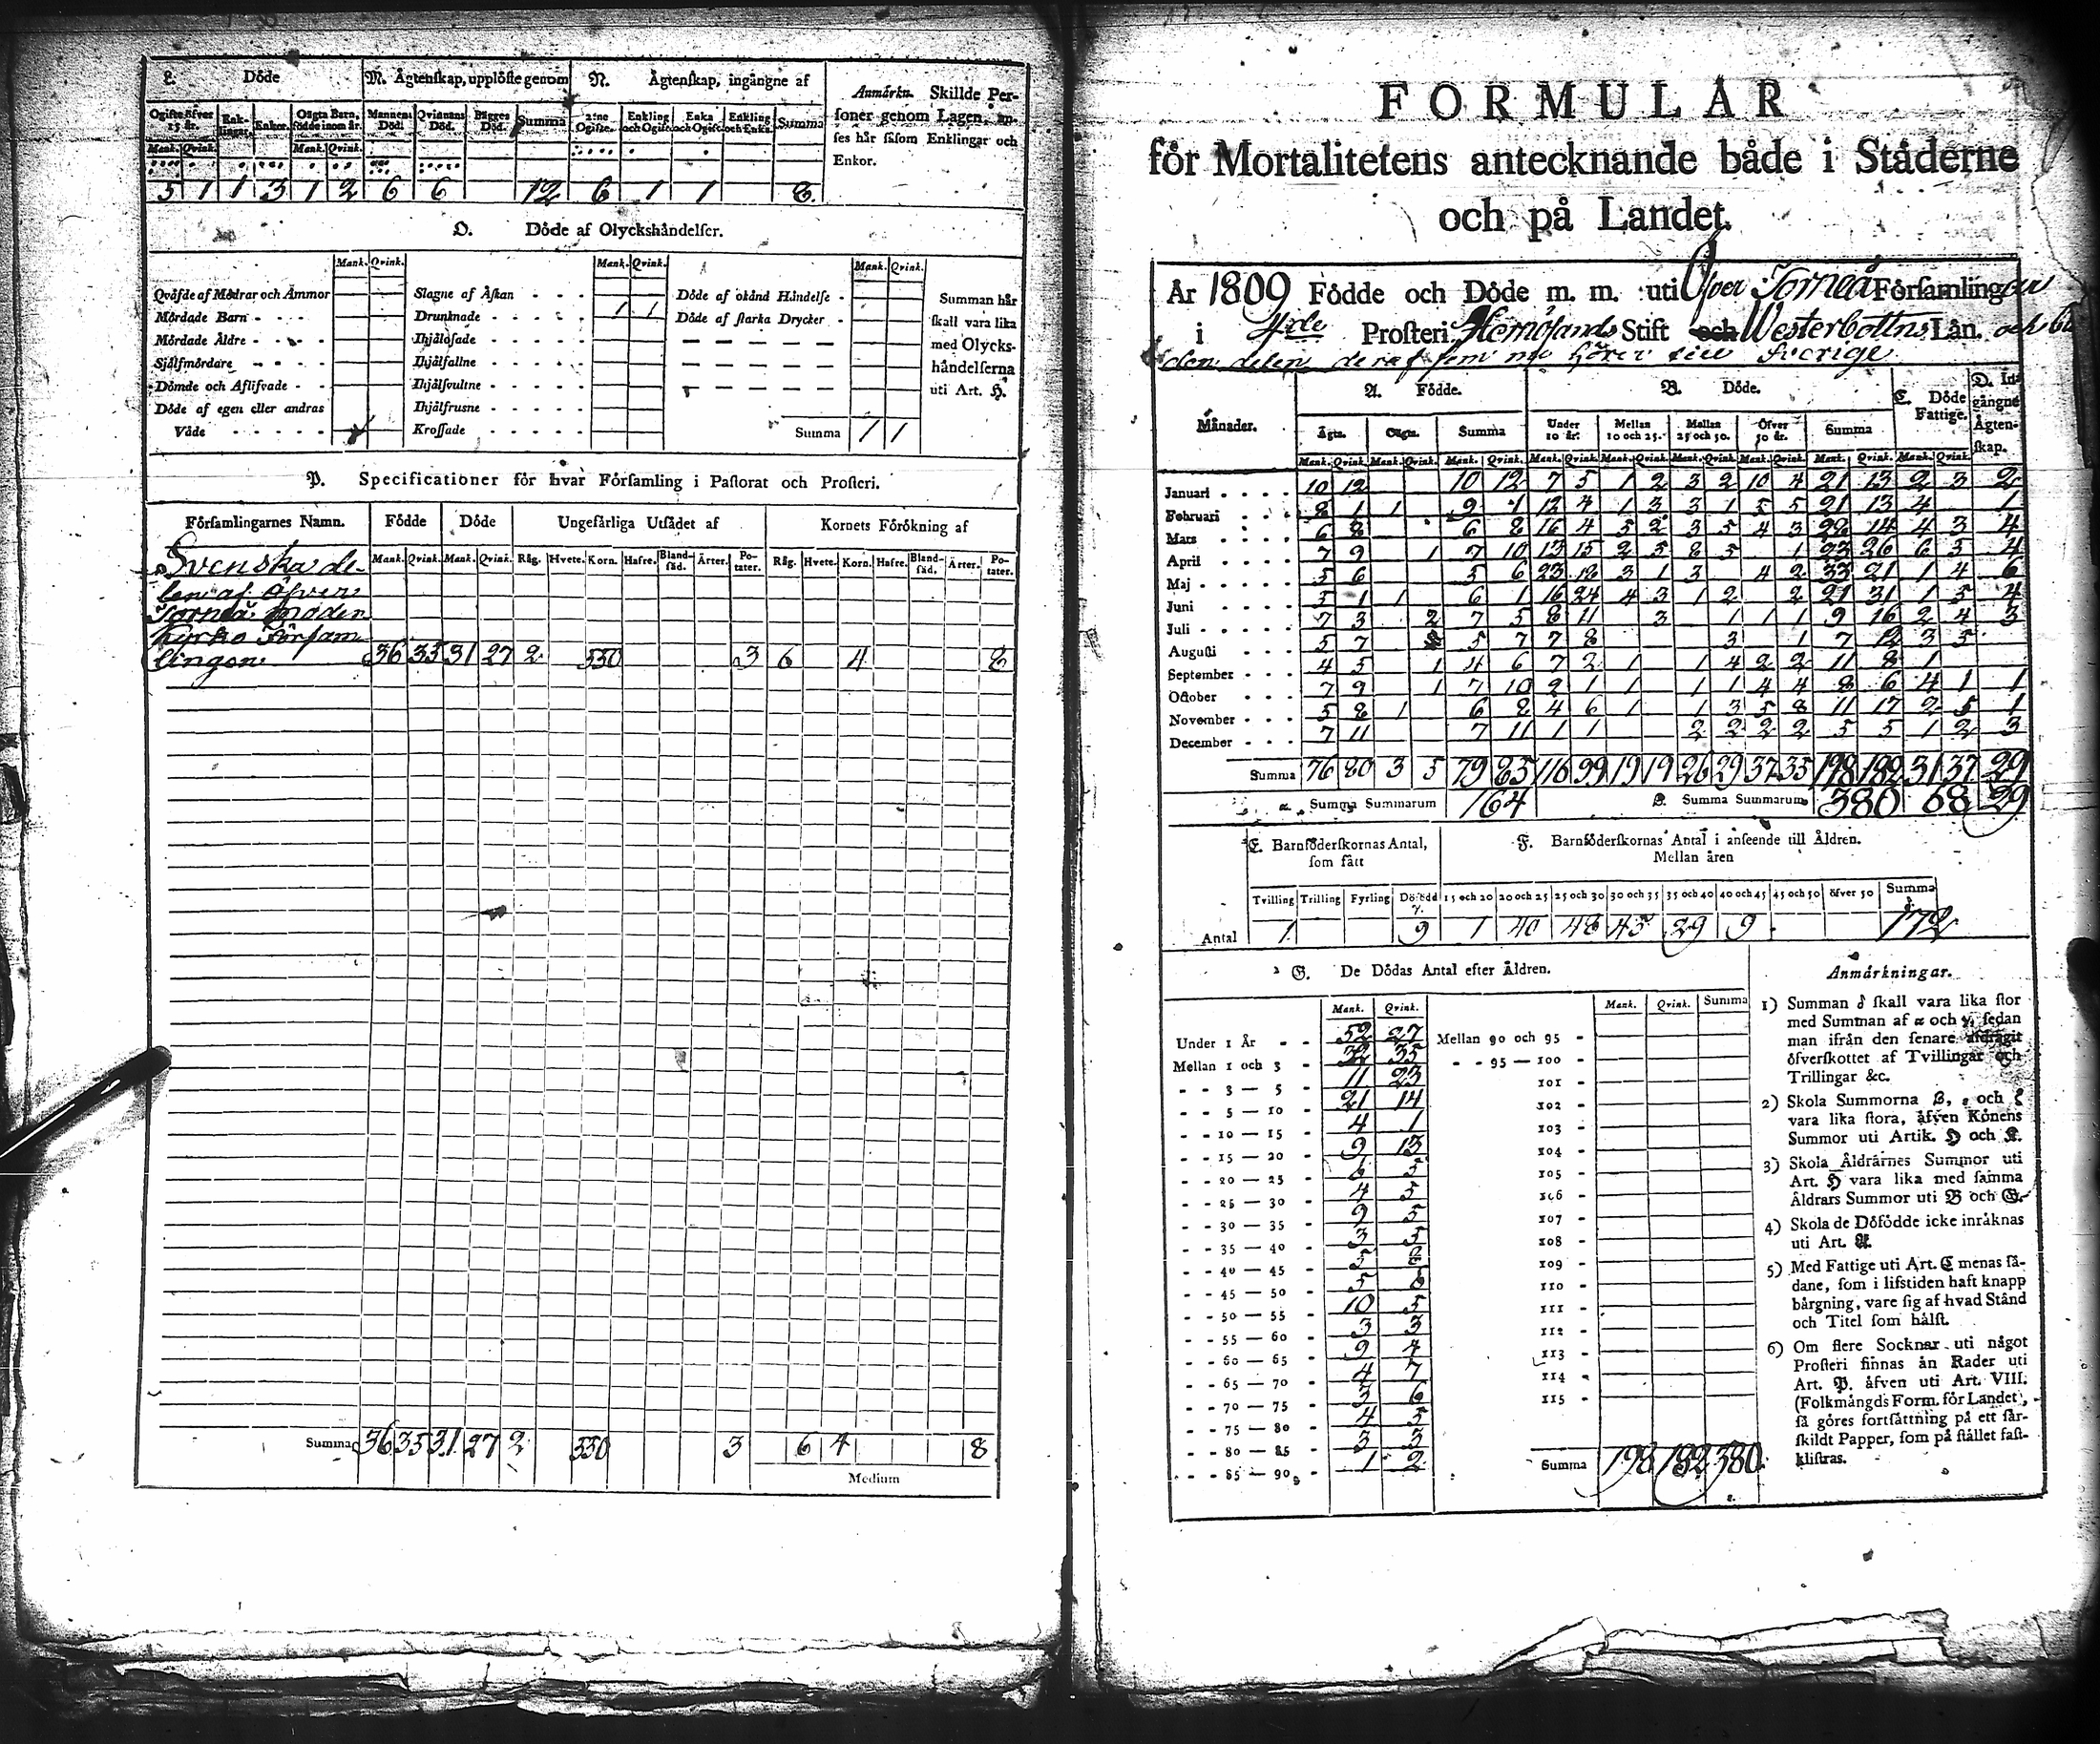 L. Döde
M. Ägtenskap, upplöste genom
N. Ägtenskap, ingångne af
Anmärkn. Skillde Personer genom Lagen, anses här såsom Enklingar och Enkor.
Ogifte öfver 15 år. Enklingar. Enkor. Oägta Barn, födde inom år. Mannens Död. Qvinnans Död. Bägges Död. Summa 2:ne Ogifte. Enkling och Ogift Enka och Ogift Enkling och Enka. Summa
Mank. Qvink. Mank. Qvink.
5 1 1 3 1 2 6 6 12 6 1 1 8
O. Döde af Olyckshändelser.
Mank. Qvink. Mank. Qvink. Mank. Qvink.
Qväfde af Mödrar och Ammor
Mördade Barn
Mördade Äldre
Självmördare
Dömde och Aflifvade
Döde af egen eller andras
Våde
Slagne af Åskan
Drunknade 1 1
Ihjälösade
Ihjälfallne
Ihjälsvultne
Ihjälfrusne
Krossade
Döde af okänd Händelse
Döde af starka Drycker
Summa 1 1
Summan här
skall vara lika
med Olycks-
händelserna
uti Art. H.
P. Specificationer för hvar Församling i Pastorat och Prosteri.
Församlingarnes Namn. Födde Döde Ungefärliga Utsädet af Kornets Förökning af
Mank. Qvink. Mank. Qvink. Råg. Hvete. Korn. Hafre. Bland-säd. Ärter. Po-tater. Råg. Hvete. Korn. Hafre. Bland-säd. Ärter. Po-tater.
Svenska de-
len af Öfver
Torneå moder
kyrko Försam
lingen 36 35 31 27 2 550 3 6 4 8
Summa 36 35 31 27 2 550 3 6 4 8
Medium
FORMULÄR
för Mortalitetens antecknande både i Städerne
och på Landet.
År 1809 Födde och Döde m. m. uti Öfver Torneå Församling
i 4de Prosteri Hernösands Stift och Westerbottns Län.
den delen deraf som nu hörer till Sverige
Månader. A. Födde. B. Döde. C. Döde Fattige. D. In-gångne Ägten-skap.
Ägta. Oägta. Summa Under 10 år. Mellan 10 och 25. Mellan 25 och 50. Öfver 50 år. Summa
Mank. Qvink. Mank. Qvink. Mank. Qvink. Mank. Qvink. Mank. Qvink. Mank. Qvink. Mank. Qvink. Mank. Qvink. Mank. Qvink.
Januari 10 12 10 12 7 5 1 2 3 2 10 4 21 13 2 3 2
Februari 8 1 1 9 1 12 4 1 3 3 1 5 5 21 13 4 1
Mars 6 8 6 8 16 4 5 2 3 5 4 3 28 14 4 3 4
April 7 9 1 7 10 13 15 2 5 8 5 1 23 26 6 5 4
Maj 5 6 5 6 23 18 3 1 3 4 2 33 21 1 4 6
Juni 5 1 1 6 1 16 24 4 3 1 2 2 21 31 1 5 4
Juli 7 3 2 7 5 8 11 3 1 1 1 9 16 2 4 3
Augusti 5 7 5 7 7 8 3 1 7 12 3 5
September 4 5 1 4 6 7 2 1 1 4 2 2 11 8 1
October 7 9 1 7 10 2 1 1 1 1 4 4 8 6 4 1 1
November 5 8 1 6 8 4 6 1 1 3 5 8 11 17 2 5 1
December 7 11 7 11 1 1 2 2 2 2 5 5 1 2 3
Summa 76 80 3 5 79 85 116 99 19 19 26 29 37 35 198 182 31 37 29
α. Summa Summarum 164 β. Summa Summarum 380 68 29
E. Barnföderskornas Antal, som fått
F. Barnföderskornas Antal i anseende till Åldren.
Mellan åren
Tvilling Trilling Fyrling Dödfödd γ. 15 och 20 20 och 25 25 och 30 30 och 35 35 och 40 40 och 45 45 och 50 öfver 50 Summa
Antal 1 9 1 40 48 45 29 9 172
G. De Dödas Antal efter Åldren.
Mank. Qvink. Mank. Qvink. Summa
Under 1 År 52 27
Mellan 1 och 3 32 35
3 — 5 11 23
5 — 10 21 14
10 — 15 4 1
15 — 20 9 13
20 — 25 6 5
25 — 30 4 5
30 — 35 9 5
35 — 40 3 5
40 — 45 5 8
45 — 50 5 6
50 — 55 10 5
55 — 60 3 3
60 — 65 9 4
65 — 70 4 7
70 — 75 3 6
75 — 80 4 5
80 — 85 3 3
85 — 90 1 2
Mellan 90 och 95
95 — 100
101
102
103
104
105
106
107
108
109
110
111
112
113
114
115
Summa 198 182 380
Anmärkningar.
1) Summan δ skall vara lika stor
med Summan af α och γ, sedan
man ifrån den senare afdragit
öfverskottet af Tvillingar och
Trillingar &c.
2) Skola Summorna β, ε och ζ
vara lika stora, äfven Könens
Summor uti Artik. H och K.
3) Skola Åldrarnes Summor uti
Art. H vara lika med samma
Åldrars Summor uti B och G.
4) Skola de Dödfödde icke inräknas
uti Art. A.
5) Med Fattige uti Art. C menas så-
dane, som i lifstiden haft knapp
bärgning, vare sig af hvad Stånd
och Titel som hälst.
6) Om flere Socknar uti något
Prosteri finnas än Rader uti
Art. P. äfven uti Art. VIII.
(Folkmängds Form. för Landet),
så göres fortsättning på ett sär-
skildt Papper, som på stället fast-
klistras.